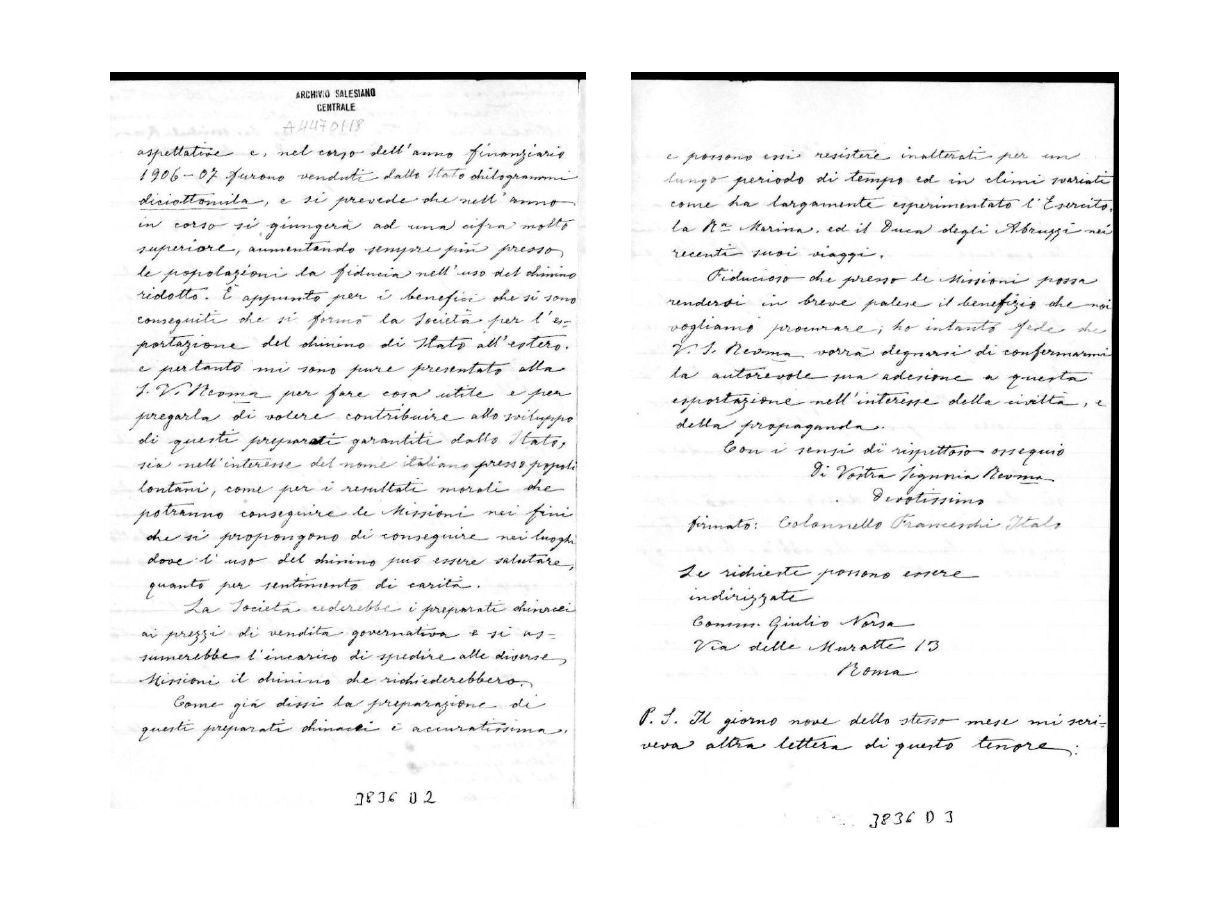 ARCHIVIO SALESIANO
CENTRALE
A4470118
aspettative e, nel corso dell'anno finanziario
1906-07 furono venduti dallo Stato chilogrammi
diciottomila, e si prevede che nell'anno
in corso si giungerà ad una cifra molto
superiore, aumentando sempre più presso
le popolazioni la fiducia nell'uso del chinino
ridotto. È appunto per i benefici che si sono
conseguiti che si formò la Società per l'es=
portazione del chinino di Stato all'estero.
e pertanto mi sono pure presentato alla
S. V. Revma per fare cosa utile e per
pregarla di volere contribuire allo sviluppo
di questi preparati garantiti dallo Stato,
sia nell'interesse del nome italiano presso popoli
lontani, come per i resultati morali che
potranno conseguire le Missioni nei fini
che si propongono di conseguire nei luoghi
dove l'uso del chinino può essere salutare,
quanto per sentimento di carità.
La Società cederebbe i preparati chinacei
ai prezzi di vendita governativa e si as=
sumerebbe l'incarico di spedire alle diverse
Missioni il chinino che richiederebbero.
Come già dissi la preparazione di
questi preparati chinacei è accuratissima.
3836 D 2
e possono essi resistere inalterati per un
lungo periodo di tempo ed in climi svariati
come ha largamente esperimentato l'Esercito,
la Ra Marina, ed il Duca degli Abruzzi nei
recenti suoi viaggi.
Fiducioso che presso le Missioni possa
rendersi in breve palese il benefizio che noi
vogliamo procurare; ho intanto fede che
V. S. Revma vorrà degnarsi di confermarmi
la autorevole sua adesione a questa
esportazione nell'interesse della civiltà, e
della propaganda.
Con i sensi di rispettoso ossequio
Di Vostra Signoria Revma
Devotissimo
firmato: Colonnello Franceschi Italo
Le richieste possono essere
indirizzate
Comm. Giulio Norsa
Via delle Muratte 13
Roma
P. S. Il giorno nove dello stesso mese mi scri=
veva altra lettera di questo tenore:
3836 D 3